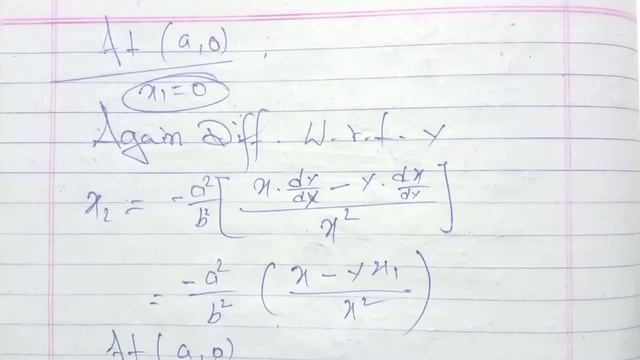 At (a,0)
x₁=0
Again Diff. W.r.t. y
x₂ = -a²/b² [ (x · dy/dx - y · dx/dy) / x² ]
= -a²/b² ( (x - yx₁) / x² )
At (a,0)